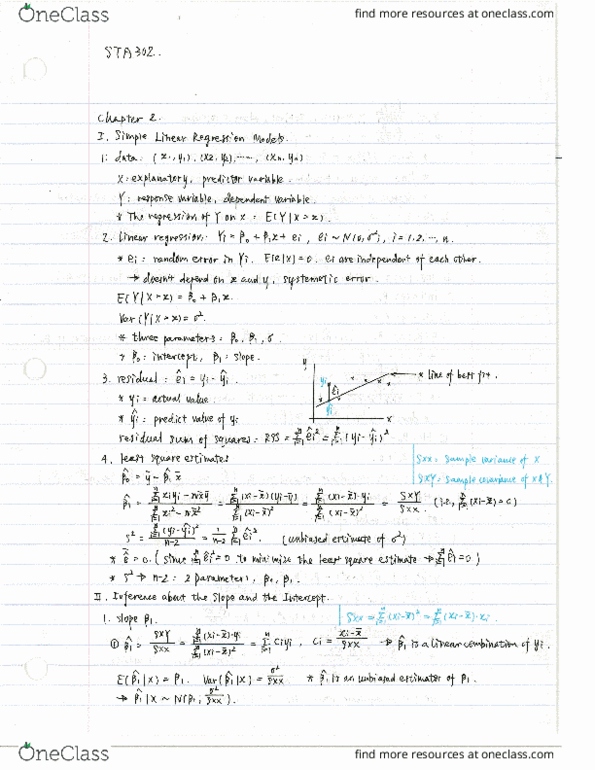 OneClass
find more resources at oneclass.com
STA302..
Chapter 2.
I. Simple Linear Regression Models.
1. data: (x₁, y₁), (x₂, y₂), ....., (xₙ, yₙ)
X: explanatory, predictor variable.
Y: response variable, dependent variable.
* The regression of Y on x = E(Y|X=x).
2. Linear regression: Yi = β₀ + β₁x + ei, ei ~ N(0, σ²), i = 1.2. ..., n.
* ei: random error in Yi. E(e|X) = 0. ei are independent of each other.
→ doesn't depend on x and y, systemetic error.
E(Y|X=x) = β₀ + β₁x.
Var(Y|X=x) = σ².
* three parameters: β₀, β₁, σ.
> β₀: intercept, β₁: slope.
3. residual: êi = yi - ŷi.
* yi = actual value.
* ŷi: predict value of yi
y yi êi ŷi x
* line of best fit.
residual sum of squares: RSS = Σêi² = Σ(yi - ŷi)²
4. least square estimates
Sxx = sample variance of X
SXY = sample covariance of X & Y.
β̂₀ = ȳ - β̂₁x̄
β̂₁ = (Σxiyi - nx̄ȳ)/(Σxi² - nx̄²) = Σ(xi-x̄)(yi-ȳ)/Σ(xi-x̄)² = Σ(xi-x̄)·yi/Σ(xi-x̄)² = SXY/Sxx. (i.e., Σ(xi-x̄) = 0)
s² = Σ(yi-ŷi)²/(n-2) = 1/(n-2) Σêi². (unbiased estimate of σ²)
* ē = 0. (since Σêi² = 0 to minimize the least square estimate → Σêi = 0)
* s² → n-2: 2 parameters, β₀, β₁.
II. Inference about the Slope and the Intercept.
1. slope β₁.
Sxx = Σ(xi-x̄)² = Σ(xi-x̄)·xi.
① β̂₁ = SXY/Sxx = Σ(xi-x̄)·yi/Σ(xi-x̄)² = Σciyi, ci = (xi-x̄)/Sxx → β̂₁ is a linear combination of yi.
E(β̂₁|X) = β₁. Var(β̂₁|X) = σ²/Sxx * β̂₁ is an unbiased estimator of β₁.
→ β̂₁|X ~ N(β₁, σ²/Sxx).
OneClass
find more resources at oneclass.com